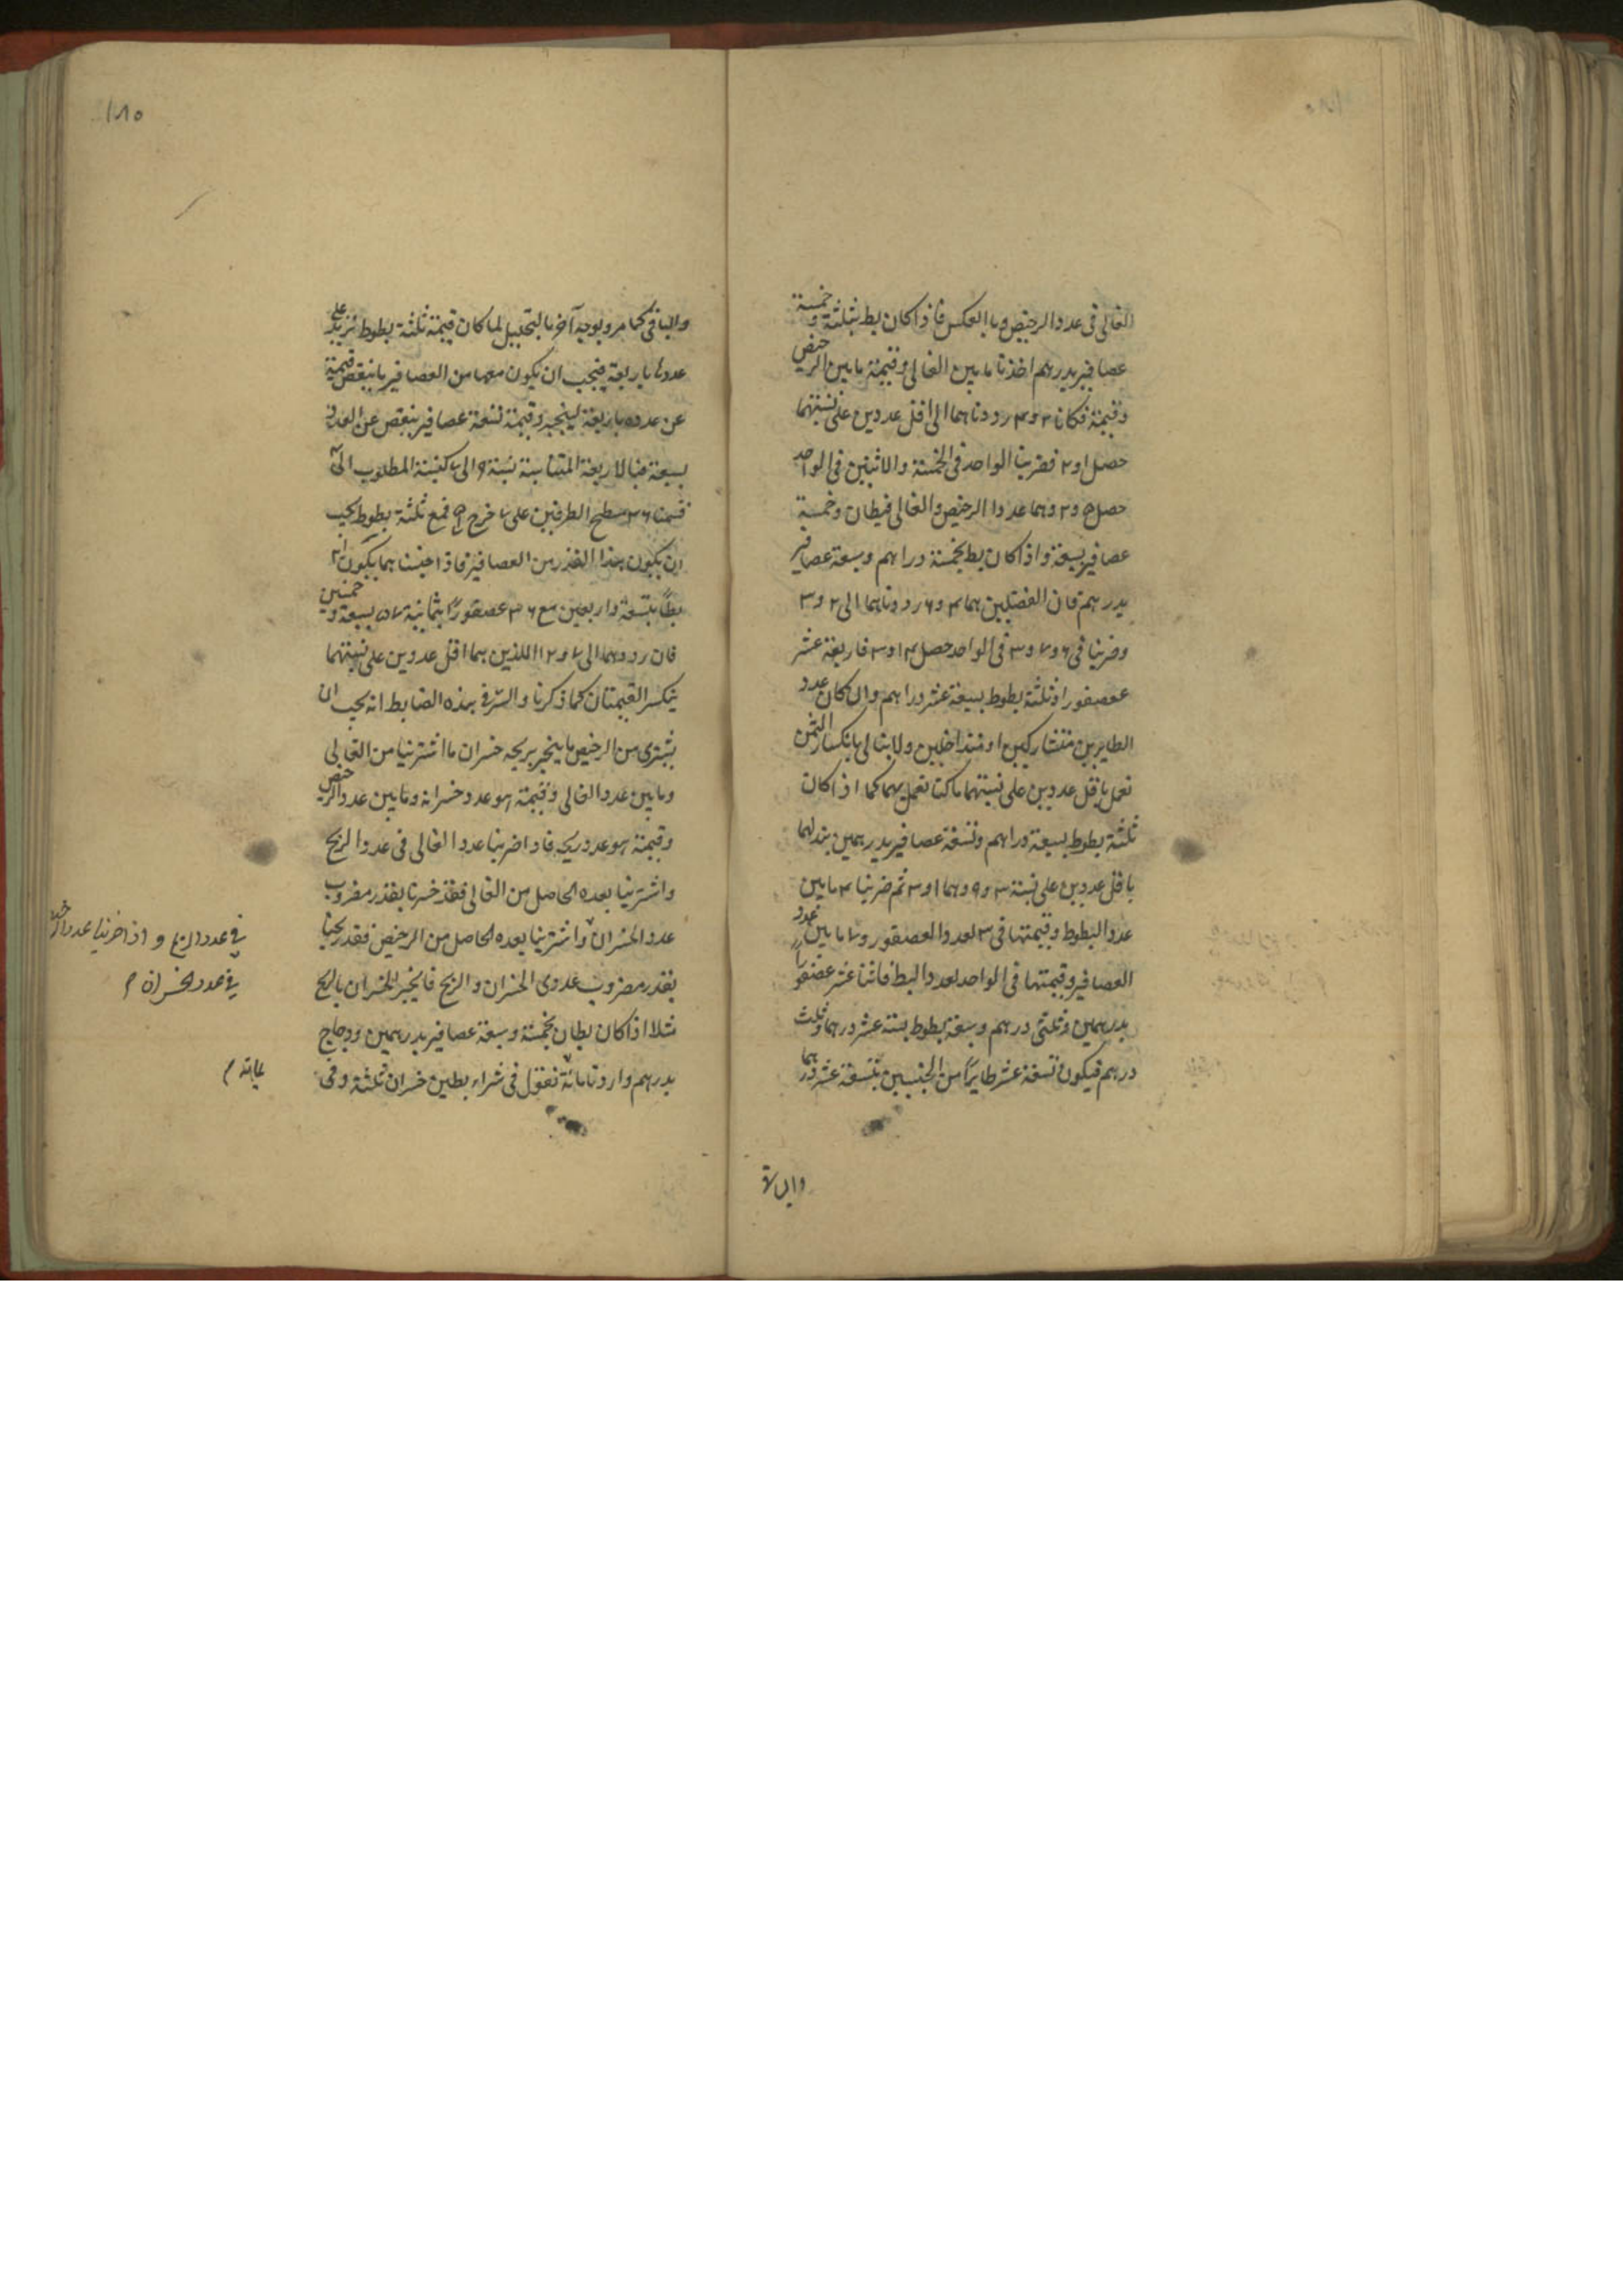 الغالى فى عدد الرخيص وبالعكس فاذا كان بط بثلثة وخمسة
عصافير بدرهم اخذنا ما بين الغالى وقيمته وما بين الرخيص
وقيمته فكانا ٢ و ٤ رددناهما الى اقل عددين على نسبتهما
حصل ١ و ٢ فضربنا الواحد فى الخمسة والاثنين فى الواحد
حصل ٥ و ٢ وهما عددا الرخيص والغالى فبطان وخمسة
عصافير بسبعة واذا كان بط بخمسة دراهم وسبعة عصافير
بدرهم فان الفضلين هما ٤ و ٦ رددناهما الى ٢ و ٣
وضربنا فى ٧ و ٣ فى الواحد حصل ١٤ و ٣ فاربعة عشر
عصفورا وثلثة بطوط بسبعة عشر دراهم وان كان عدد
الطايرين متشاركين او متداخلين ولا يبالى بانكسار الثمن
نعمل باقل عددين على نسبتهما ما كنا نعمل بهما كما اذا كان
ثلثة بطوط بسبعة دراهم وتسعة عصافير بدرهمين بدلهما
باقل عددين على نسبة ٣ و ٩ وهما ١ و ٣ ثم ضربنا ٤ ما بين
عدد البطوط وقيمتها فى ٣ لعدد العصفور و ٧ ما بين عدد
العصافير وقيمتها فى الواحد لعدد البط فاثنا عشر عصفورا
بدرهمين وثلثى درهم وسبعة بطوط بستة عشر درهما وثلث
درهم فيكون تسعة عشر طايرا من الجنسين بتسعة عشر درهما
١٨٥
والباقى كما مر وبوجه آخر بالتحليل لما كان قيمة ثلثة بطوط تزيد على
عددها باربعة فيجب ان يكون معها من العصافير ما ينقص قيمته
عن عدده باربعة لينجبر وقيمة تسعة عصافير ينقص عن العدد
بسبعة فبالاربعة المتناسبة نسبة ٩ الى ٧ كنسبة المطلوب الى ٤
قسمنا ٣٦ مسطح الطرفين على ٧ خرج ٥ فمع ثلثة بطوط يجب
ان يكون هذا القدر من العصافير فاذا جنسناهما يكون ٢١
بطا بتسعة واربعين مع ٣٦ عصفورا بثمانية ٥٧ بسبعة وخمسين
فان رددهما الى ٧ و ١٢ اللذين هما اقل عددين على نسبتهما
ينكسر القيمتان كما ذكرنا والسر فى هذه الضابط انه يجب ان
يشترى من الرخيص ما ينجبر بربحه خسران ما اشترينا من الغالى
وما بين عدد الغالى وقيمته هو عدد خسرانه وما بين عدد الرخيص
وقيمته هو عدد ربحه فاذا ضربنا عدد الغالى فى عدد الربح
واشترينا بعده الحاصل من الغالى فقد خسرنا بقدر مضروب
عدد الخسران واشترينا بعده الحاصل من الرخيص فقد ربحنا
بقدر مضروب عددى الخسران والربح فانجبر الخسران بالربح
مثلا اذا كان بطان بخمسة وسبعة عصافير بدرهمين ودجاج
بدرهم واردنا مائة نقول فى شراء بطين خسران ثلثة وفى
فى عدد الربح و اذا ضربنا عدد الرخيص
فى عدد الخسران م
بمائة م